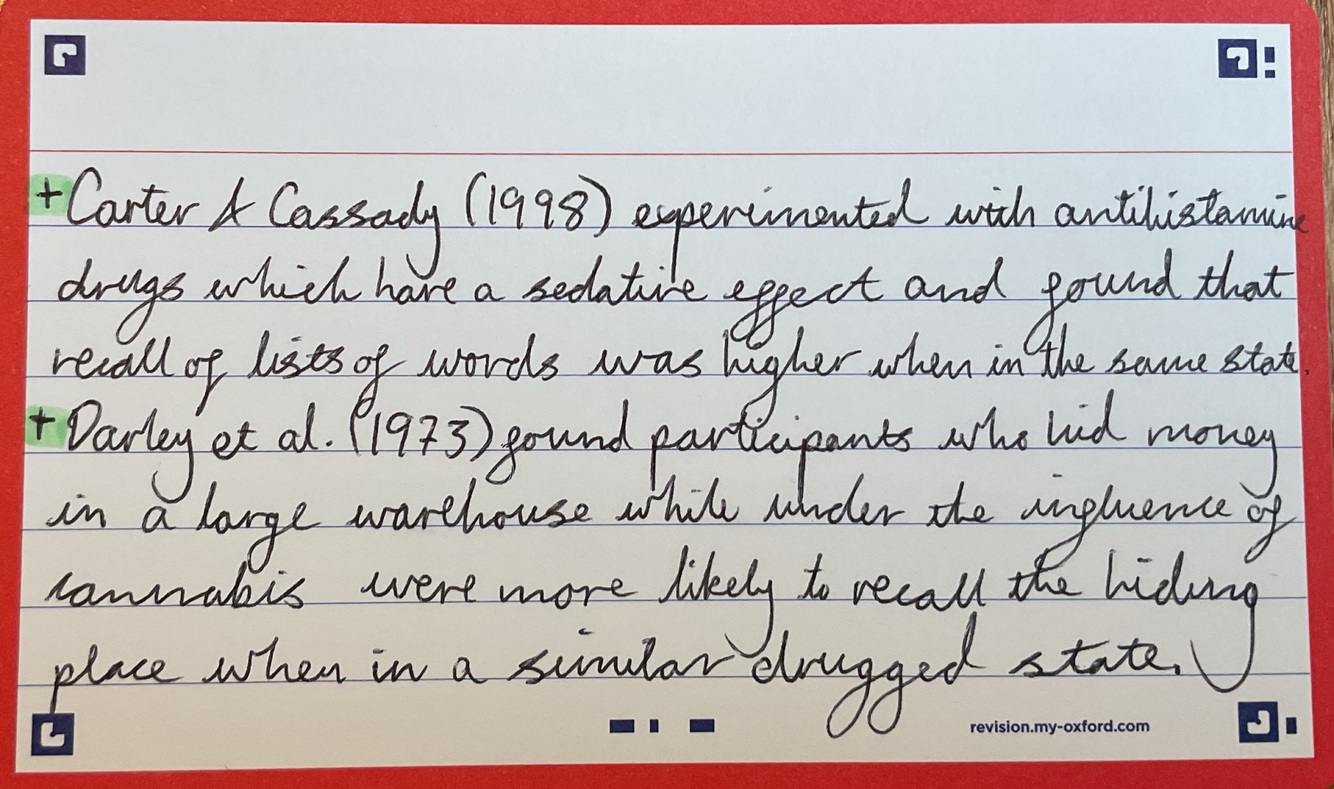 + Carter & Cassady (1998) experimented with antihistamine
drugs which have a sedative effect and found that
recall of lists of words was higher when in the same state.
+ Darley et al. (1973) found participants who hid money
in a large warehouse while under the influence of
cannabis were more likely to recall the hiding
place when in a similar drugged state.
revision.my-oxford.com